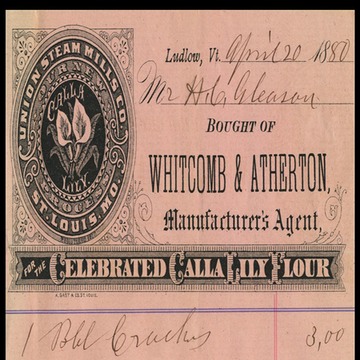 UNION STEAM MILLS CO.
OUR NEW
CALLA
LILY
PROCESS
ST. LOUIS, MO.
Ludlow, Vt. April 20 1880
Mr H. C. Gleason
BOUGHT OF
WHITCOMB & ATHERTON,
Manufacturer's Agent,
FOR THE CELEBRATED CALLA LILY FLOUR
1 Bbl Crackers 3,00